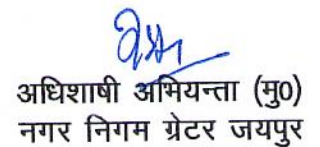 अधिशाषी अभियन्ता (मु०)
नगर निगम ग्रेटर जयपुर